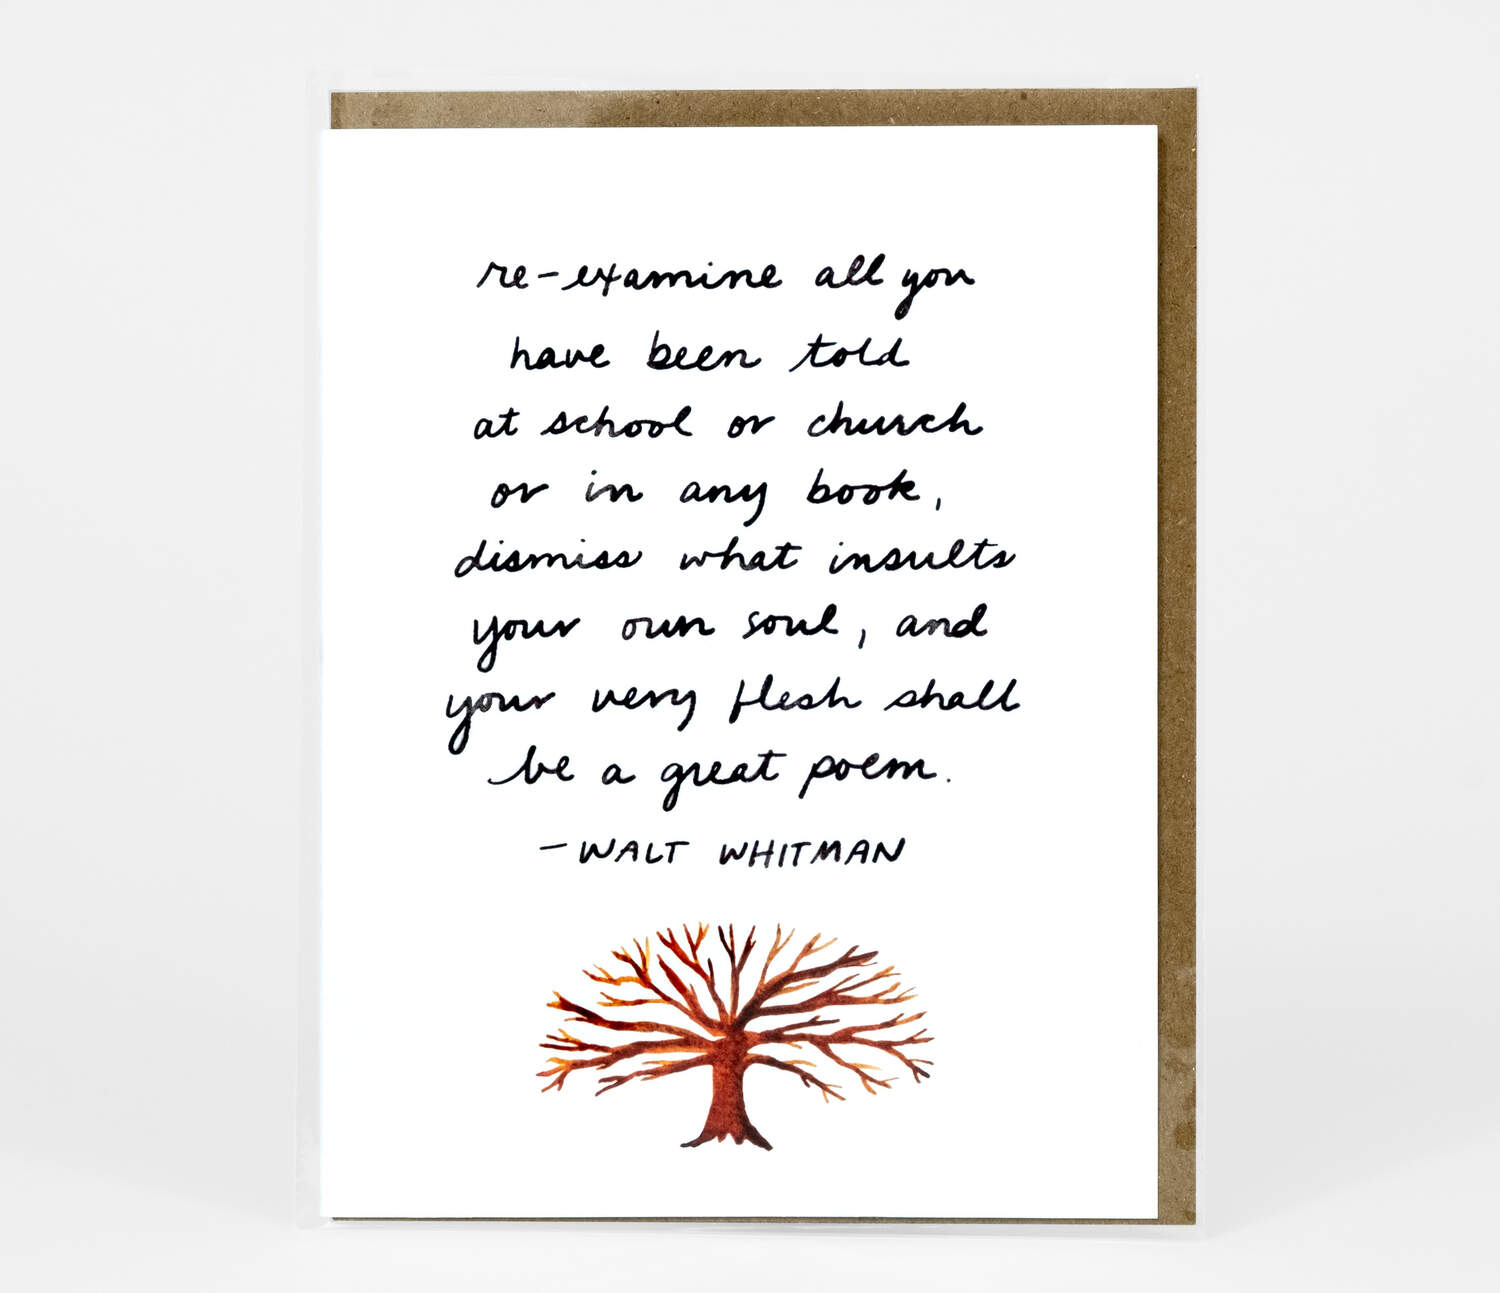 re-examine all you
have been told
at school or church
or in any book,
dismiss what insults
your own soul, and
your very flesh shall
be a great poem.
-WALT WHITMAN